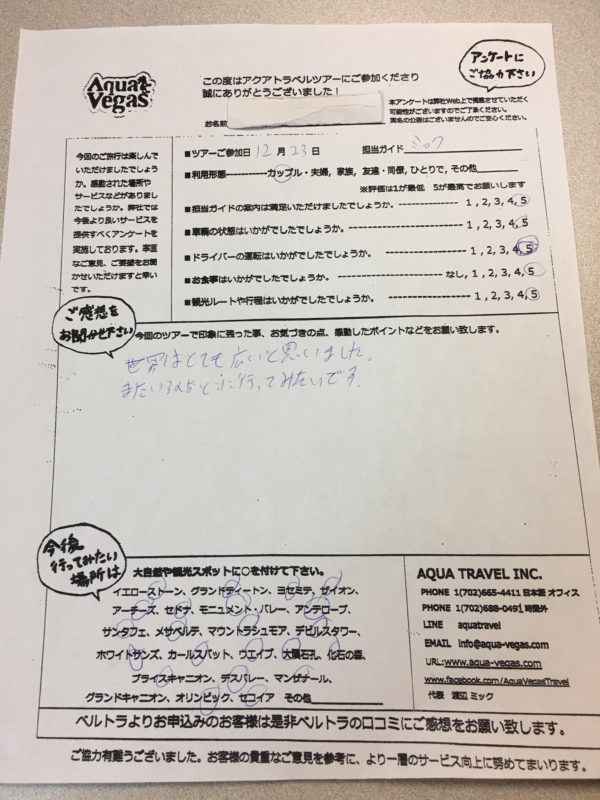 Aqua
Vegas
この度はアクアトラベルツアーにご参加くださり
誠にありがとうございました！
アンケートに
ご協力下さい
お名前
本アンケートは弊社Web上で掲載させていただく
可能性がございますのでご了承ください。
実名の公表はございませんのでご安心ください。
今回のご旅行は楽しんで
いただけましたでしょう
か。感動された場所や
サービスなどがありまし
たでしょうか。弊社では
今後より良いサービスを
提供すべくアンケートを
実施しております。率直
なご意見、ご要望をお聞
かせいただけますと幸い
です。
■ツアーご参加日 12 月 23 日 担当ガイド ジャック
■利用形態-----------カップル・夫婦, 家族, 友達・同僚, ひとりで, その他
※評価は1が最低 5が最高でお願いします
■担当ガイドの案内は満足いただけましたでしょうか。 ---------------- 1 , 2, 3, 4, 5
■車輌の状態はいかがでしたでしょうか。 ---------------- 1 , 2, 3, 4, 5
■ドライバーの運転はいかがでしたでしょうか。 ---------------- 1 , 2, 3, 4, 5
■お食事はいかがでしたでしょうか。 ---------------- なし, 1 , 2, 3, 4, 5
■観光ルートや行程はいかがでしたでしょうか。 ---------------- 1 , 2, 3, 4, 5
ご感想を
お聞かせ下さい
今回のツアーで印象に残った事、お気づきの点、感動したポイントなどをお願い致します。
世界はとても広いと思いました。
またいろんなところに行ってみたいです。
今後
行ってみたい
場所は
大自然や観光スポットに○を付けて下さい。
イエローストーン、グランドティートン、ヨセミテ、ザイオン、
アーチーズ、セドナ、モニュメント・バレー、アンテロープ、
サンタフェ、メサベルデ、マウントラシュモア、デビルスタワー、
ホワイトサンズ、カールスバット、ウエイブ、大隕石孔、化石の森、
ブライスキャニオン、デスバレー、マンザナール、
グランドキャニオン、オリンピック、セコイア その他
AQUA TRAVEL INC.
PHONE 1(702)665-4411 日本語 オフィス
PHONE 1(702)688-0491 時間外
LINE aquatravel
EMAIL info@aqua-vegas.com
URL:www.aqua-vegas.com
www.facebook.com/AquaVegasTravel
代表 渡辺 ミック
ベルトラよりお申込みのお客様は是非ベルトラの口コミにご感想をお願い致します。
ご協力有難うございました。お客様の貴重なご意見を参考に、より一層のサービス向上に努めてまいります。